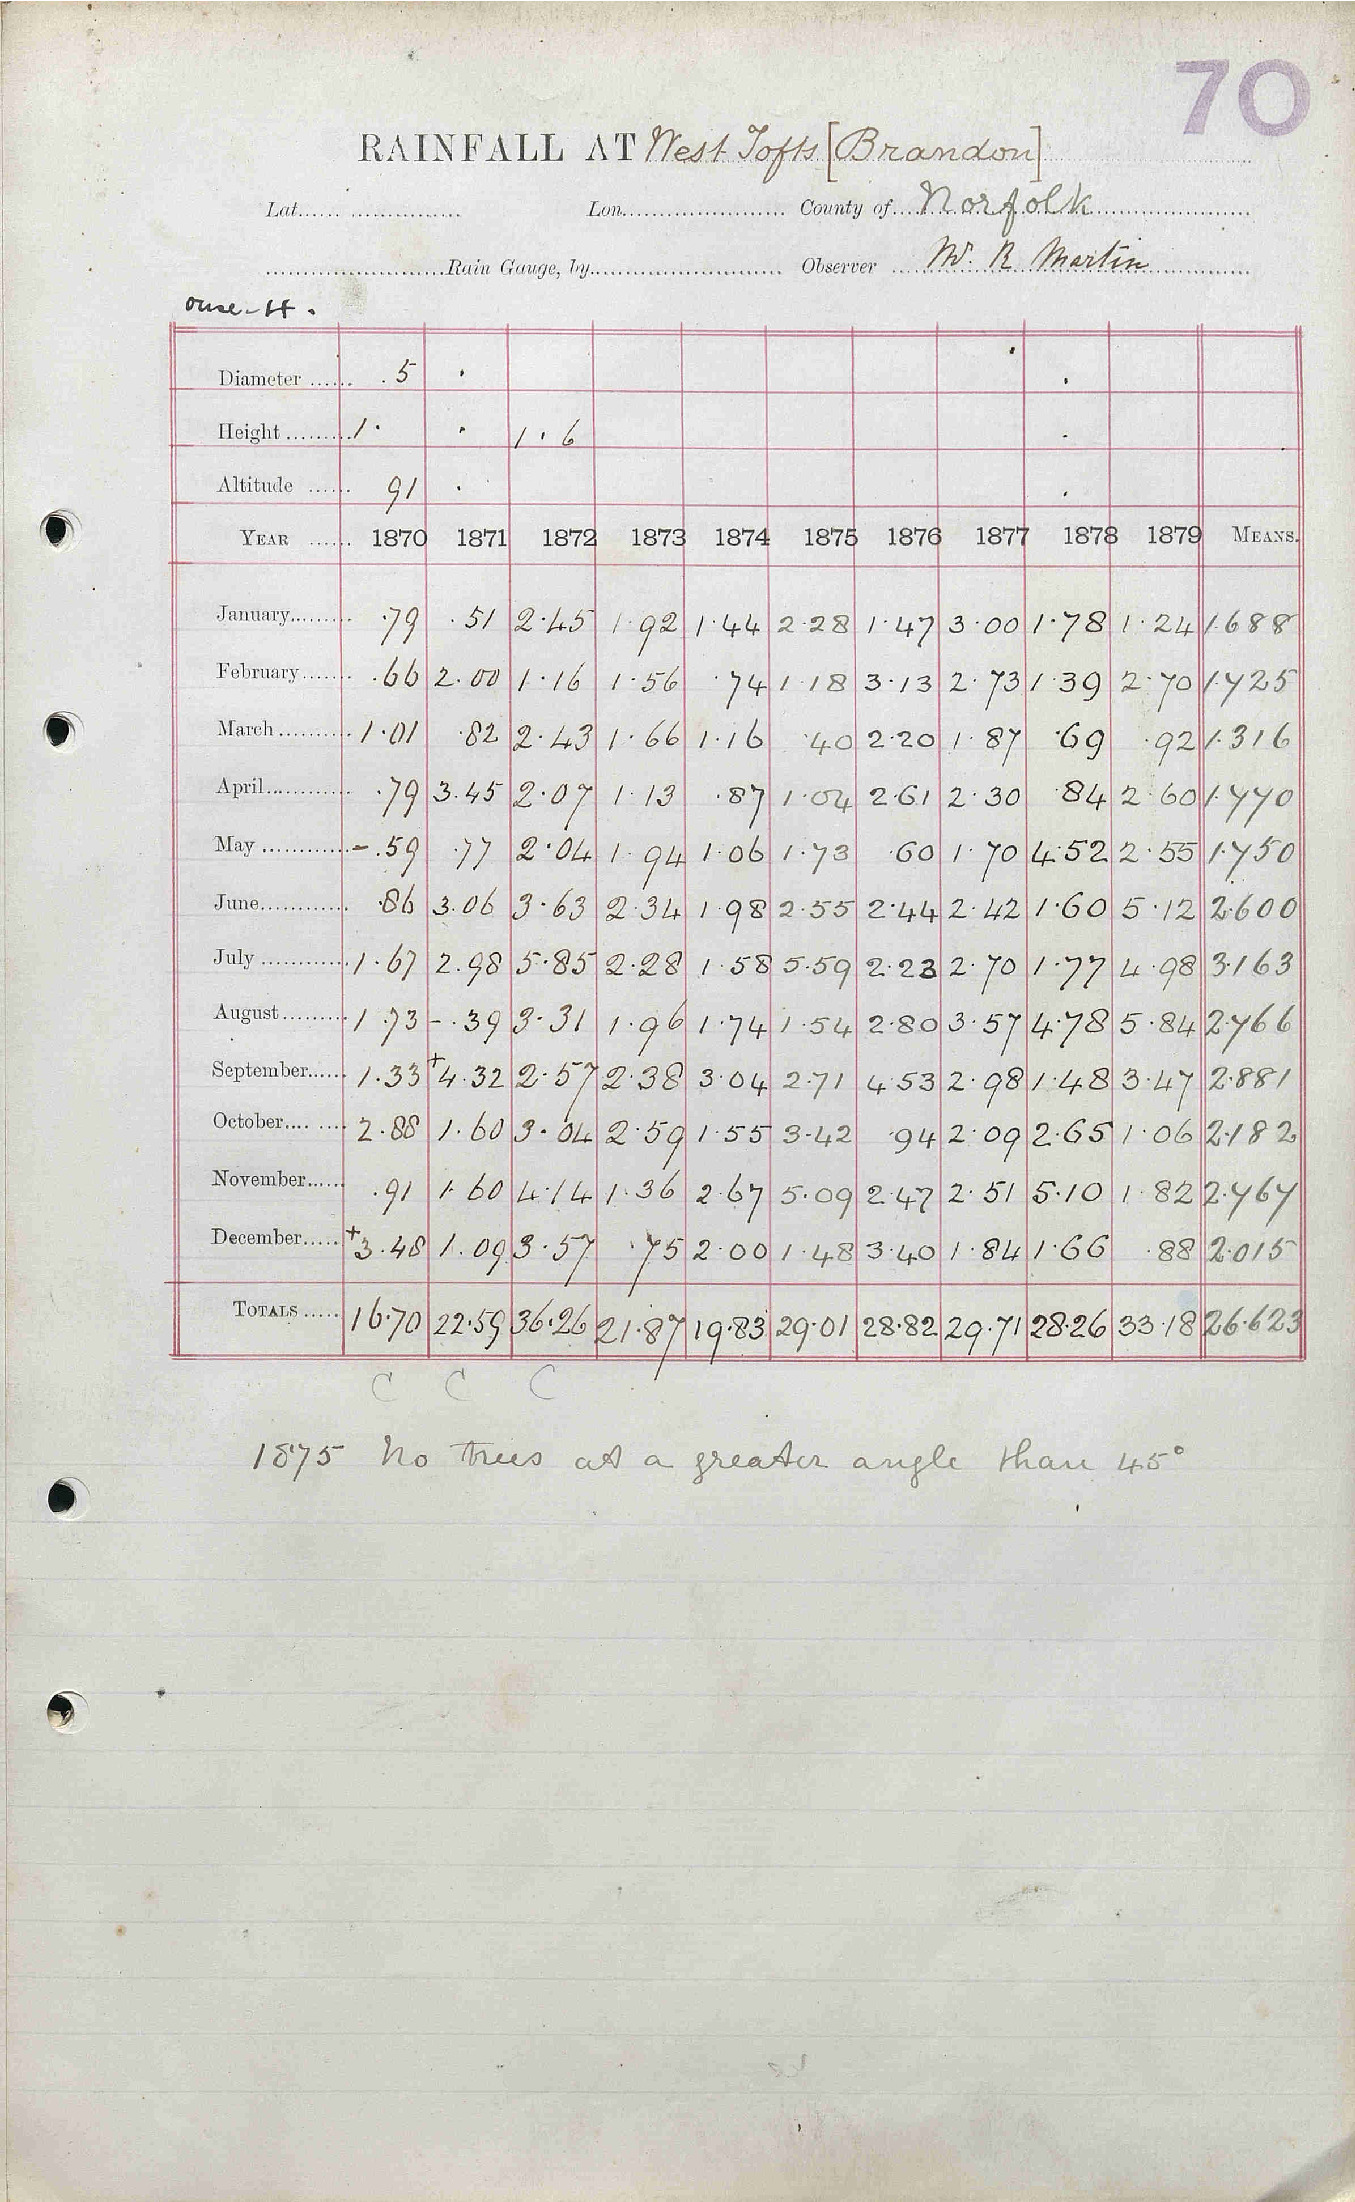 70
RAINFALL AT West Tofts [Brandon]
Lat. Lon. County of Norfolk
Rain Gauge, by Observer Mr. R Martin
Ouse-H.
Diameter 5 .
Height 1. . 1.6
Altitude 91 .
YEAR 1870 1871 1872 1873 1874 1875 1876 1877 1878 1879 MEANS.
January .79 .51 2.45 1.92 1.44 2.28 1.47 3.00 1.78 1.24 1.688
February .66 2.00 1.16 1.56 .74 1.18 3.13 2.73 1.39 2.70 1.725
March 1.01 .82 2.43 1.66 1.16 .40 2.20 1.87 .69 .92 1.316
April .79 3.45 2.07 1.13 .87 1.04 2.61 2.30 .84 2.60 1.770
May -.59 .77 2.04 1.94 1.06 1.73 .60 1.70 4.52 2.55 1.750
June .86 3.06 3.63 2.34 1.98 2.55 2.44 2.42 1.60 5.12 2.600
July 1.67 2.98 5.85 2.28 1.58 5.59 2.23 2.70 1.77 4.98 3.163
August 1.73 -.39 3.31 1.96 1.74 1.54 2.80 3.57 4.78 5.84 2.766
September 1.33 +4.32 2.57 2.38 3.04 2.71 4.53 2.98 1.48 3.47 2.881
October 2.88 1.60 3.04 2.59 1.55 3.42 .94 2.09 2.65 1.06 2.182
November .91 1.60 4.14 1.36 2.67 5.09 2.47 2.51 5.10 1.82 2.767
December +3.48 1.09 3.57 .75 2.00 1.48 3.40 1.84 1.66 .88 2.015
TOTALS 16.70 22.59 36.26 21.87 19.83 29.01 28.82 29.71 28.26 33.18 26.623
C C C
1875 No trees at a greater angle than 45°